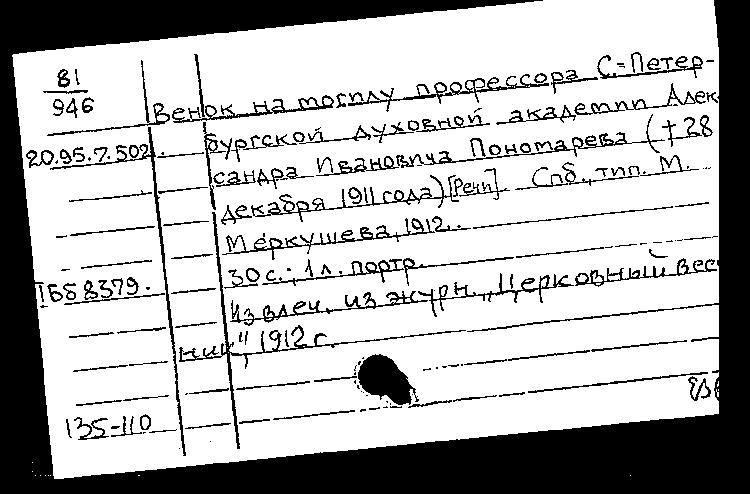 81
946
Венок на могилу профессора С.-Петер-
20.95.7.502. бургской духовной академии Алек
сандра Ивановича Пономарева († 28
декабря 1911 года) [Речи]. Спб., тип. М.
Меркушева, 1912.
30 с.; 1 л. портр.
1658379.
Извлеч. из журн. „Церковный вес
ник", 1912 г.
135-110